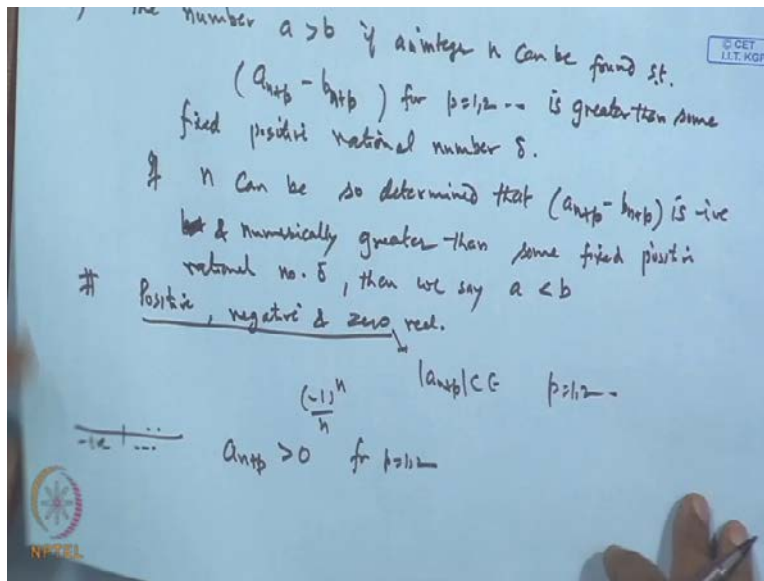 the number a > b if an integer n can be found s.t.
© CET
I.I.T. KGP
(a_{n+p} - b_{n+p}) for p=1,2 -- is greater than some
fixed positive rational number δ.
If n can be so determined that (a_{n+p} - b_{n+p}) is -ive
& numerically greater than some fixed positive
rational no. δ, then we say a < b
# Positive, negative & zero real.
|a_{n+p}| < ε p=1,2--
(-1)^n / n
-ve
a_{n+p} > 0 for p=1,2
NPTEL